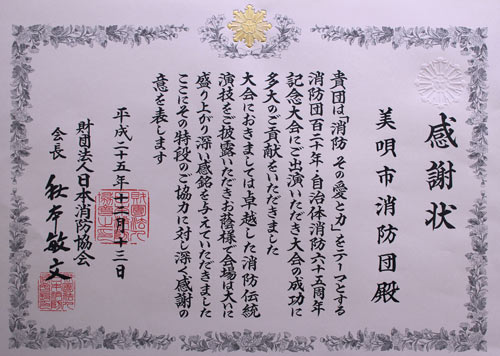 感謝状
美唄市消防団殿
貴団は「消防 その愛と力」をテーマとする
消防団百二十年・自治体消防六十五周年
記念大会にご出演いただき大会の成功に
多大のご貢献をいただきました
大会におきましては卓越した消防伝統
演技をご披露いただきお蔭様で会場は大いに
盛り上がり深い感銘を与えていただきました
ここにその特段のご協力に対し深く感謝の
意を表します
平成二十五年十二月十三日
財団法人日本消防協会
会長 秋本敏文